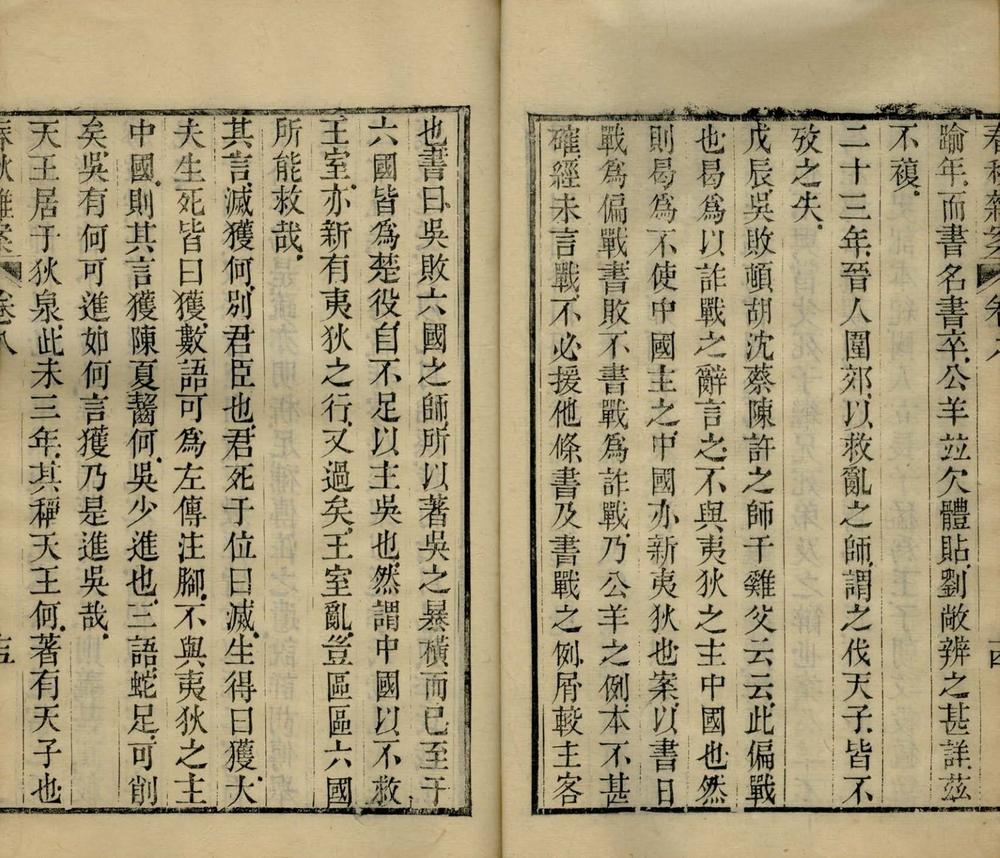 春秋雜案 卷八 十四
踰年而書名書卒公羊並欠體貼劉敞辨之甚詳茲
不複
二十三年晉人圍郊以救亂之師謂之伐天子皆不
攷之失
戊辰吳敗頓胡沈蔡陳許之師于雞父云云此偏戰
也曷為以詐戰之辭言之不與夷狄之主中國也然
則曷為不使中國主之中國亦新夷狄也案以書日
戰為偏戰書敗不書戰為詐戰乃公羊之例本不甚
確經未言戰不必援他條書及書戰之例屑較主客
也書曰吳敗六國之師所以著吳之暴橫而已至于
六國皆為楚役自不足以主吳也然謂中國以不救
王室亦新有夷狄之行又過矣王室亂豈區區六國
所能救哉
其言滅獲何別君臣也君死于位曰滅生得曰獲大
夫生死皆曰獲數語可為左傳注腳不與夷狄之主
中國則其言獲陳夏齧何吳少進也三語蛇足可削
矣吳有何可進如何言獲乃是進吳哉
天王居于狄泉此未三年其稱天王何著有天子也
春秋雜案 卷八 十五